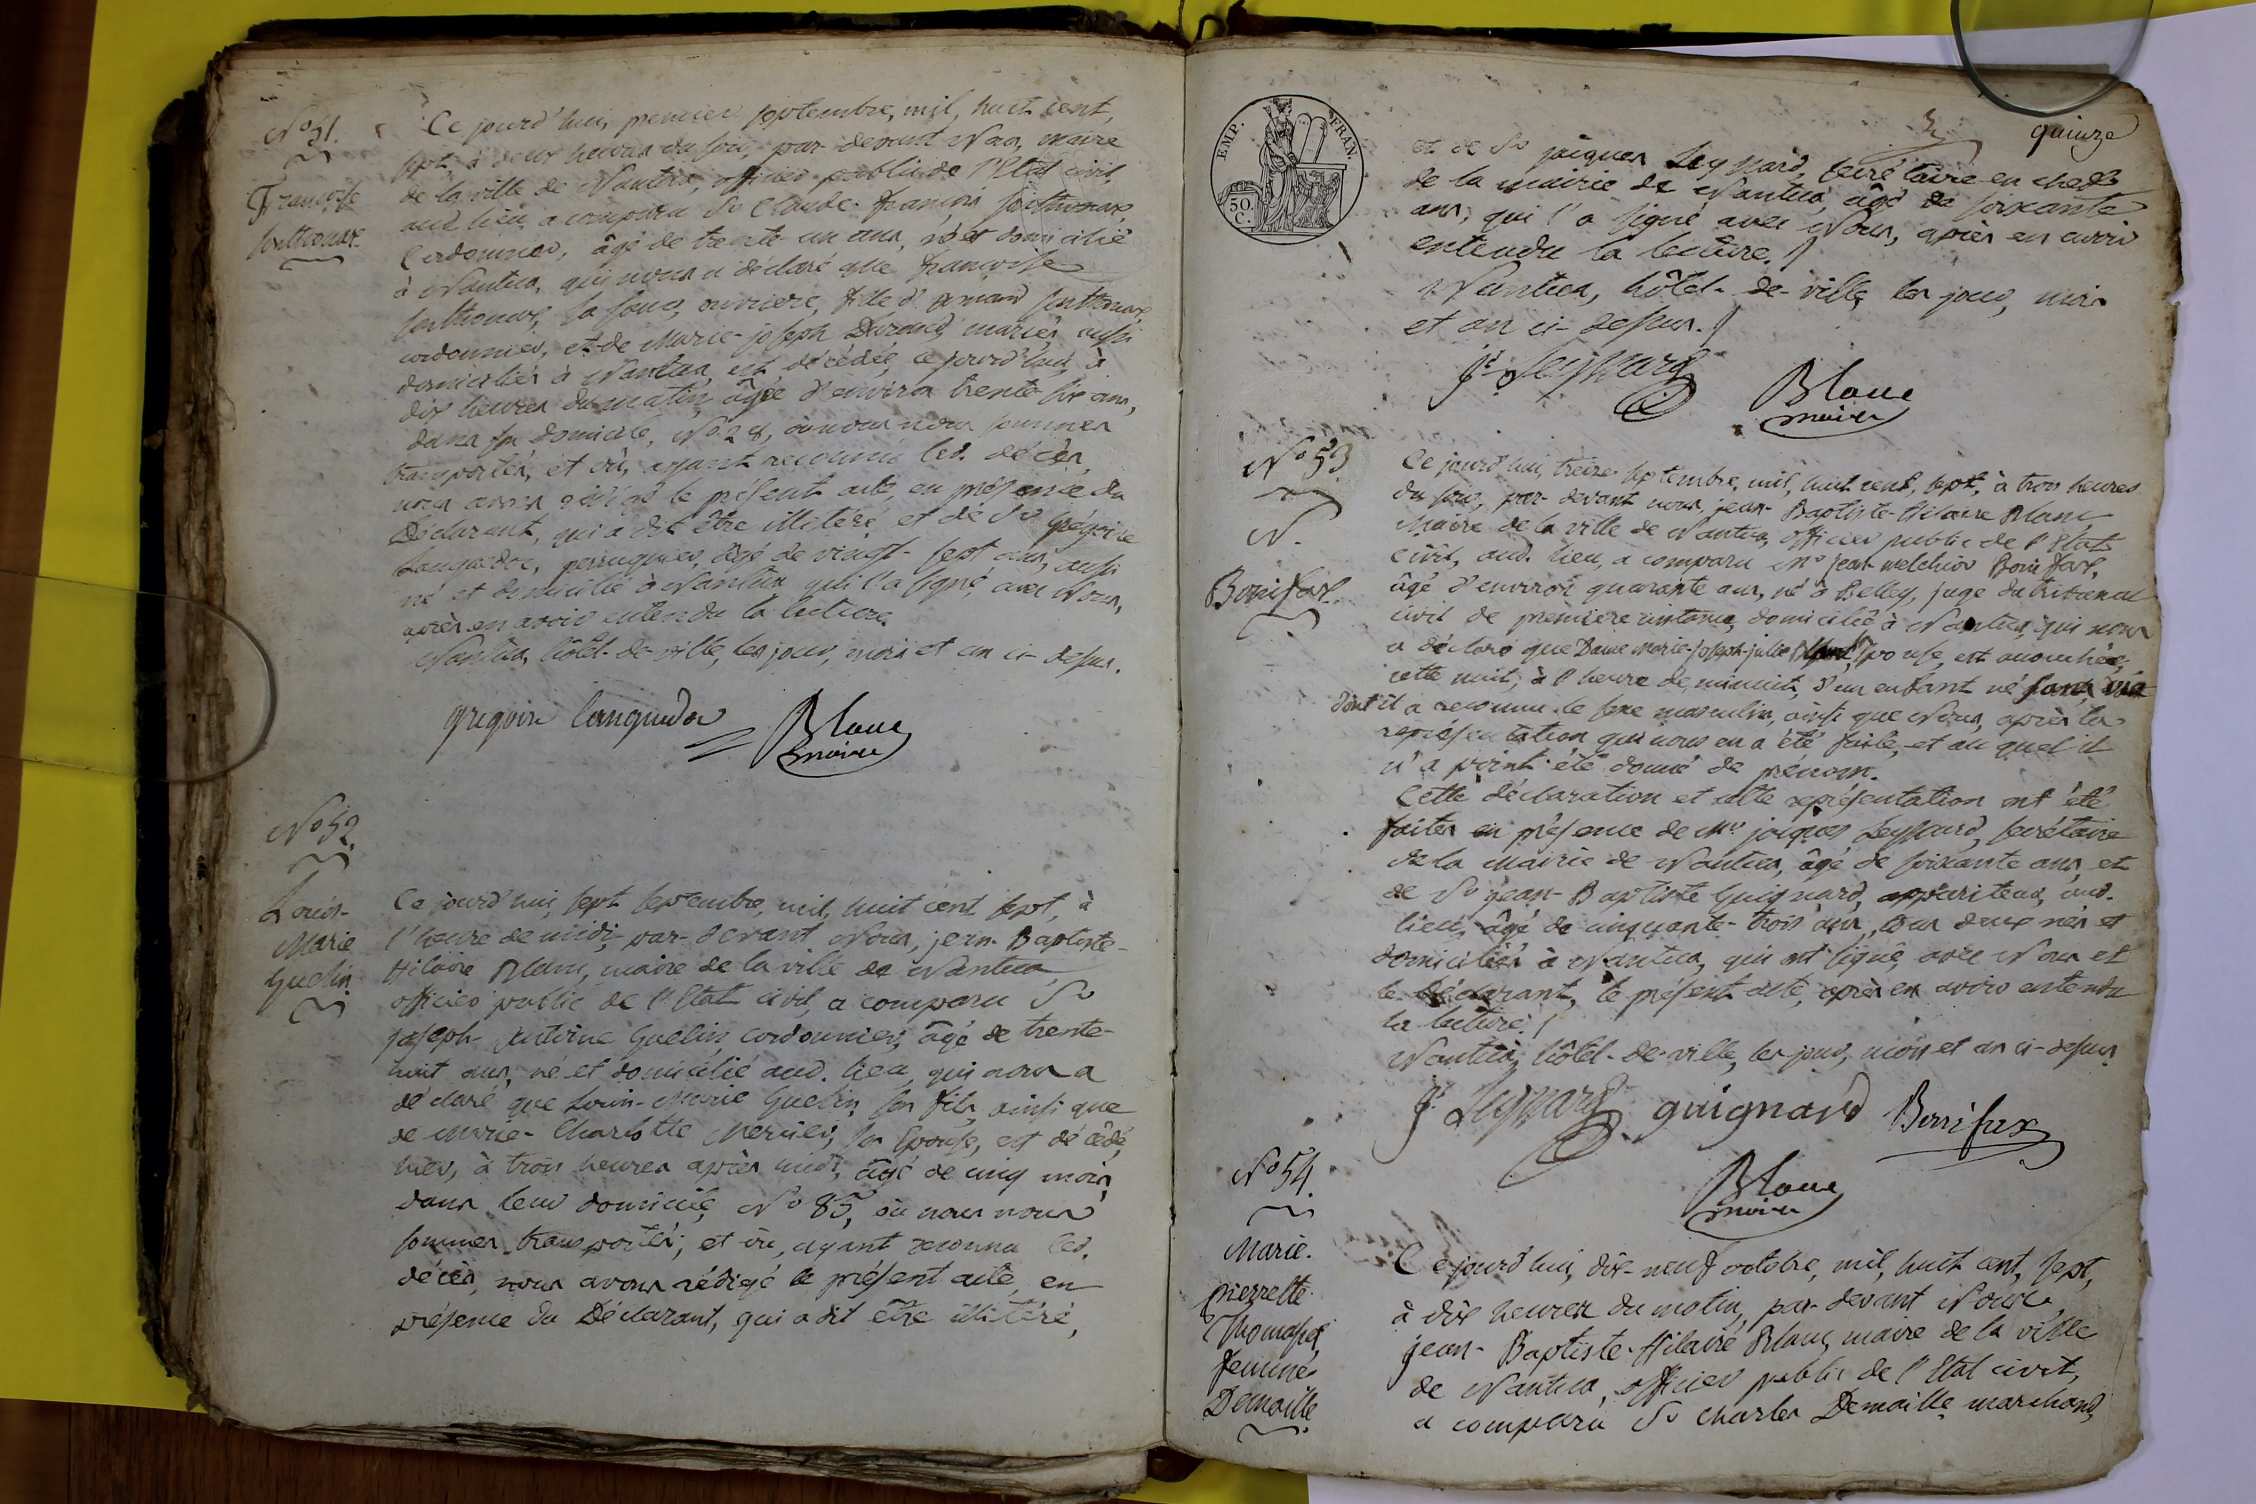 N.o 51.
Françoise
Sonthonax.
Ce jourd'hui, premier septembre, mil, huit cent,
sept, à deux heures du soir, par-devant Nous, maire
de la ville de Nantua, officier public de l'Etat civil,
aud. lieu, a comparu Sr. Claude-françois Sonthonax,
Cordonnier, âgé de trente-un ans, né et domicilié
à Nantua, qui nous a déclaré que françoise
Sonthonax, sa sœur, ouvriere, fille d' Sonthonax,
cordonnier, et de Marie-joseph mariés, aussi
domiciliés à Nantua, est décédée, ce jourd'hui, à
dix heures du matin, âgée d'environ trente-six ans,
dans son domicile, N.o 28, où nous nous sommes
transportés, et où, ayant reconnu led. décès,
nous avons rédigé le présent acte, en présence du
Déclarant, qui a dit être illitéré, et de Sr. Grégoire
Languedoc, perruquier, âgé de vingt-sept ans, aussi
né et domicilié à Nantua, qui l'a signé, avec Nous,
après en avoir entendu la lecture.
Nantua, hôtel-de-ville, les jour, mois et an ci-dessus.
gregoire languedoc Blanc
maire
N.o 52.
Louis-
Marie
Guelin.
Ce jourd'hui, sept septembre, mil, huit cent sept, à
l'heure de midi, par-devant Nous, jean-Baptiste-
Hilaire Blanc, maire de la ville de Nantua,
officier public de l'Etat civil, a comparu Sr.
joseph-Antoine Guelin, cordonnier, âgé de trente-
huit ans, né et domicilié aud. lieu, qui nous a
déclaré que Louis-Marie Guelin, son fils, ainsi que
de Marie-Charlotte Mercier, son Epouse, est décédé,
hier, à trois heures après midi, âgé de cinq mois,
dans leur domicile, N.o 85, où nous nous
sommes transportés; et où, ayant reconnu led.
décès, nous avons rédigé le présent acte, en
présence du Déclarant, qui a dit être illitéré,
quinze
EMP. FRAN.
50.
C.
et de Sr. jacques Leyssard, secrétaire en chef
de la mairie de Nantua, âgé de soixante
ans, qui l'a signé avec Nous, après en avoir
entendu la lecture.
Nantua, hôtel-de-ville, les jour, mois
et an ci-dessus.
Jes. Leyssard Blanc
maire
N.o 53.
N.
Bonifax.
Ce jourd'hui, treize septembre, mil, huit cent, sept, à trois heures
du soir, par-devant nous, jean-Baptiste-Hilaire Blanc,
Maire de la ville de Nantua, officier public de l'Etat
civil, aud. lieu, a comparu Mr. jean-melchior Bonifax,
âgé d'environ quarante ans, né à Belley, juge du tribunal
civil de premiere instance, domicilié à Nantua, qui nous
a déclaré que Dame Marie-joseph-julie Epouse, est accouchée,
cette nuit, à l'heure de minuit, d'un enfant né sans vie
dont il a reconnu le sexe masculin, ainsi que Nous, après la
représentation qui nous en a été faite, et au quel il
n'a point été donné de prénom.
Cette déclaration et cette représentation ont été
faites en présence de Mr. jacques Leyssard, secrétaire
de la mairie de Nantua, âgé de soixante ans, et
de Sr. jean-Baptiste Guignard, appariteur, aud.
lieu, âgé de cinquante-trois ans, tous deux nés et
domiciliés à Nantua, qui ont signé, avec Nous et
le Déclarant, le présent acte, après en avoir entendu
la lecture.
Nantua, hôtel-de-ville, les jour, mois et an ci-dessus
Jes. Leyssard guignard Bonifax
Blanc
maire
N.o 54.
Marie-
pierrette
Thomasset,
femme
Demaille.
Ce jourd'hui, dix-neuf octobre, mil, huit cent, sept,
à dix heures du matin, par-devant Nous,
jean-Baptiste-Hilaire Blanc, maire de la ville
de Nantua, officier public de l'Etat civil,
a comparu Sr. Charles Demaille, marchand,